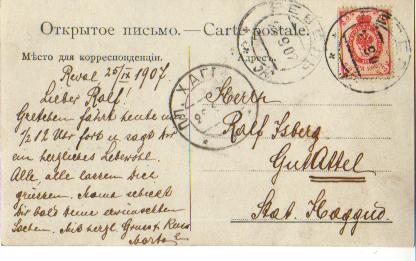 Открытое письмо. — Carte postale.
Мѣсто для корреспонденціи.
Адресъ.
Reval 25/IX 1907.
Lieber Ralf!
Gretchen fährt heute um
1/2 12 Uhr fort und sagt Dir
ein herzliches Lebewohl.
Alle, alle lassen Dich
grüssen. Mama schickt
Dir bald Deine erwünschten
Sachen. Mit herzl. Gruss u. Kuss
Herrn
Ralf Isberg
Gut Attel
Stat. Haggud.